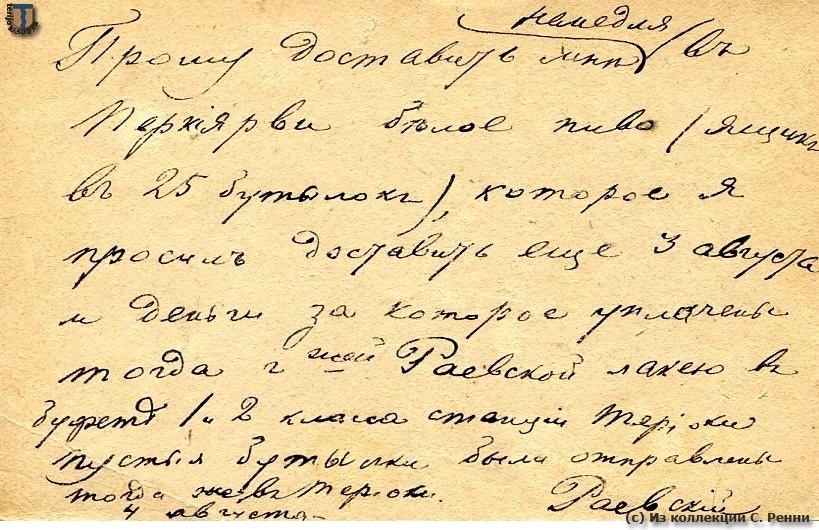 немедля
Прошу доставить мнѣ (въ
Перкіярви бѣлое пиво (ящикъ
въ 25 бутылокъ), которое я
просилъ доставить еще 3 августа
и деньги за которое уплачены
тогда г жой Раевской лакею въ
буфетѣ 1 и 2 класса станціи Теріоки
Пустыя бутылки были отправлены
тогда же въ Теріоки. Раевскій
4 августа
(c) Из коллекции С. Ренни